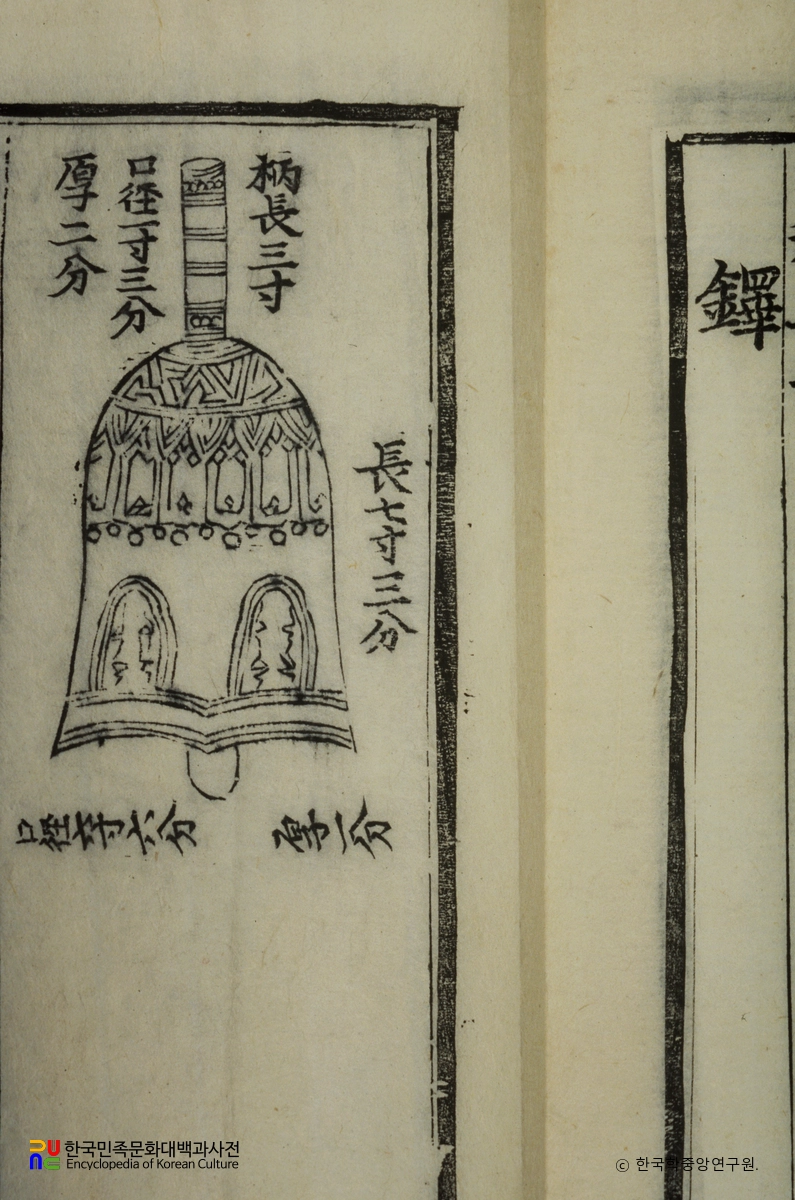 鐸
柄長三寸
口徑一寸三分
厚二分
長七寸三分
厚一分
한국민족문화대백과사전
Encyclopedia of Korean Culture
ⓒ 한국학중앙연구원.